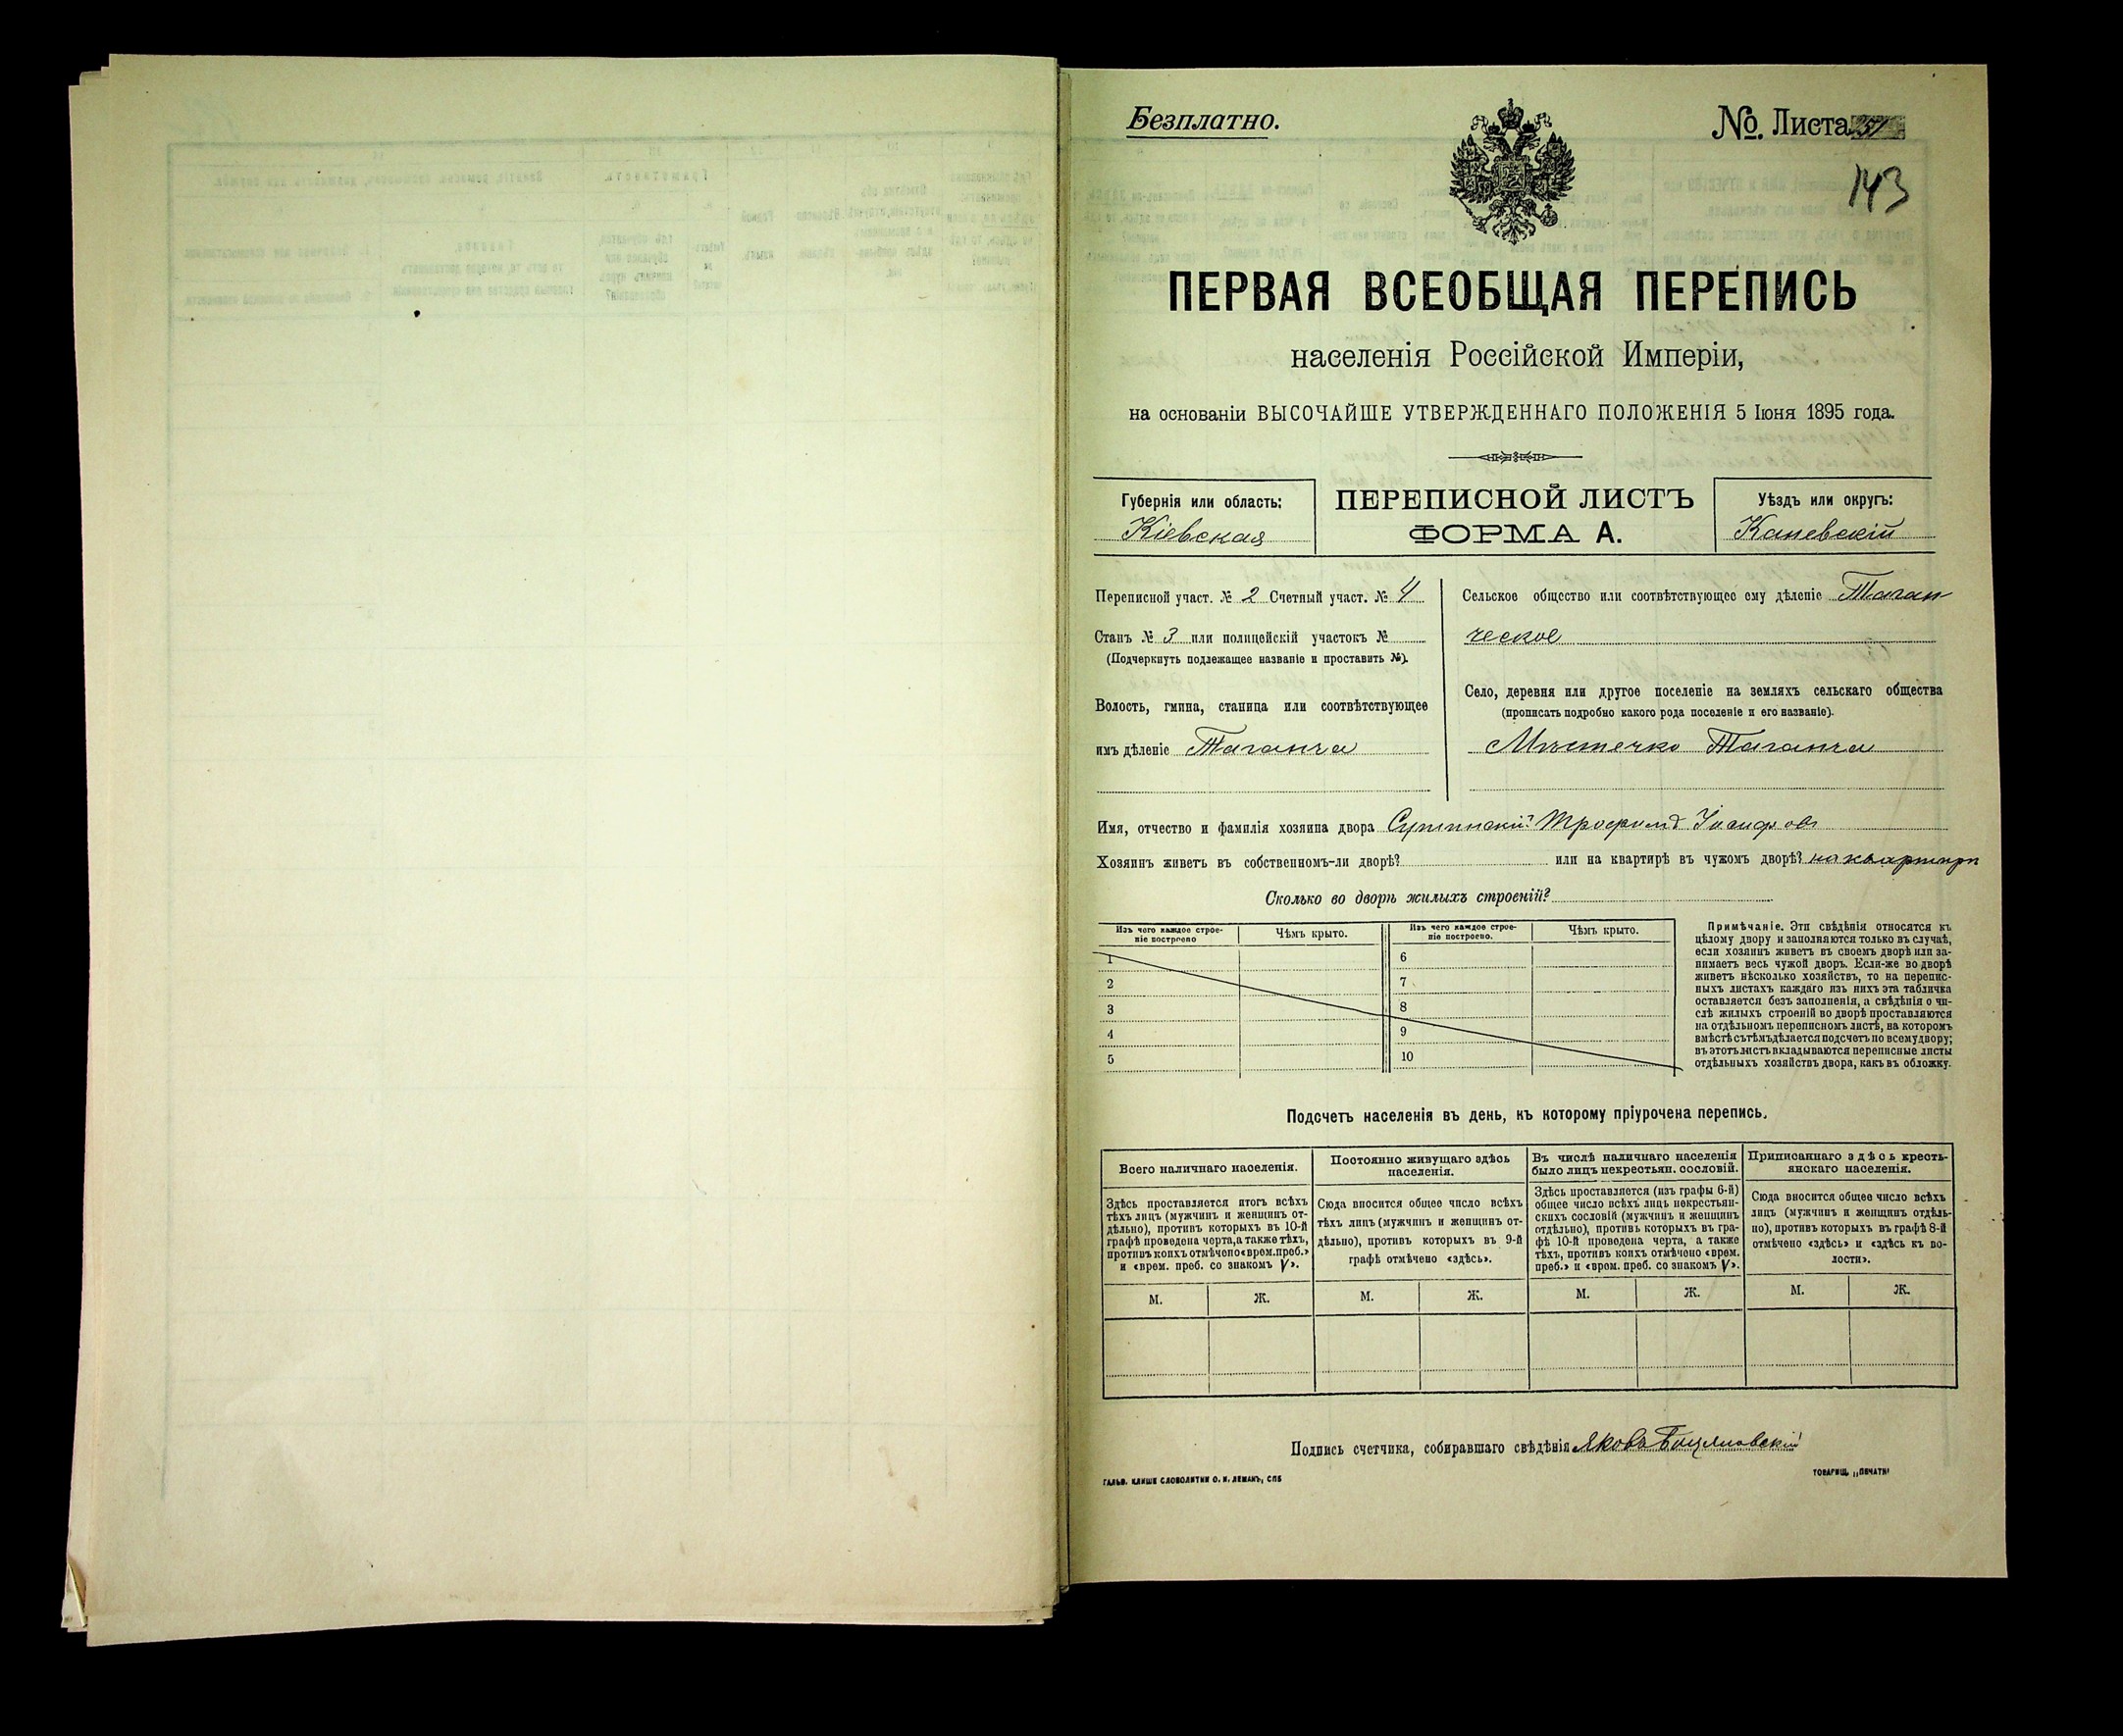 Безплатно.
№ Листа 51
143
ПЕРВАЯ ВСЕОБЩАЯ ПЕРЕПИСЬ
населенія Россійской Имперіи,
на основаніи ВЫСОЧАЙШЕ УТВЕРЖДЕННАГО ПОЛОЖЕНІЯ 5 Іюня 1895 года.
Губернія или область:
Кіевская
ПЕРЕПИСНОЙ ЛИСТЪ
ФОРМА А.
Уѣздъ или округъ:
Каневскій
Переписной участ. № 2 Счетный участ. № 4
Станъ № 3 или полицейскій участокъ №
(Подчеркнуть подлежащее названіе и проставить №).
Волость, гмина, станица или соотвѣтствующее
имъ дѣленіе Таганча
Сельское общество или соотвѣтствующее ему дѣленіе Таган
ческое
Село, деревня или другое поселеніе на земляхъ сельскаго общества
(прописать подробно какого рода поселеніе и его названіе).
Мѣстечко Таганча
Имя, отчество и фамилія хозяина двора Трофимъ Іосифовъ
Хозяинъ живетъ въ собственномъ-ли дворѣ? или на квартирѣ въ чужомъ дворѣ? на квартирѣ
Сколько во дворѣ жилыхъ строеній?
Изъ чего каждое строе-
ніе построено
Чѣмъ крыто.
Изъ чего каждое строе-
ніе построено.
Чѣмъ крыто.
1
2
3
4
5
6
7
8
9
10
Примѣчаніе. Эти свѣдѣнія относятся къ
цѣлому двору и заполняются только въ случаѣ,
если хозяинъ живетъ въ своемъ дворѣ или за-
нимаетъ весь чужой дворъ. Если-же во дворѣ
живетъ нѣсколько хозяйствъ, то на перепис-
ныхъ листахъ каждаго изъ нихъ эта табличка
оставляется безъ заполненія, а свѣдѣнія о чи-
слѣ жилыхъ строеній во дворѣ проставляются
на отдѣльномъ переписномъ листѣ, на которомъ
вмѣстѣ съ тѣмъ дѣлается подсчетъ по всему двору;
въ этотъ листъ вкладываются переписные листы
отдѣльныхъ хозяйствъ двора, какъ въ обложку.
Подсчетъ населенія въ день, къ которому пріурочена перепись.
Всего наличнаго населенія.
Здѣсь проставляется итогъ всѣхъ
тѣхъ лицъ (мужчинъ и женщинъ от-
дѣльно), противъ которыхъ въ 10-й
графѣ проведена черта, а также тѣхъ,
противъ коихъ отмѣчено «врем. преб.»
и «врем. преб. со знакомъ V».
М.
Ж.
Постоянно живущаго здѣсь
населенія.
Сюда вносится общее число всѣхъ
тѣхъ лицъ (мужчинъ и женщинъ от-
дѣльно), противъ которыхъ въ 9-й
графѣ отмѣчено «здѣсь».
М.
Ж.
Въ числѣ наличнаго населенія
было лицъ некрестьян. сословій.
Здѣсь проставляется (изъ графы 6-й)
общее число всѣхъ лицъ некрестьян-
скихъ сословій (мужчинъ и женщинъ
отдѣльно), противъ которыхъ въ гра-
фѣ 10-й проведена черта, а также
тѣхъ, противъ коихъ отмѣчено «врем.
преб.» и «врем. преб. со знакомъ V».
М.
Ж.
Приписаннаго здѣсь кресть-
янскаго населенія.
Сюда вносится общее число всѣхъ
лицъ (мужчинъ и женщинъ отдѣль-
но), противъ которыхъ въ графѣ 8-й
отмѣчено «здѣсь» и «здѣсь къ во-
лости».
М.
Ж.
Подпись счетчика, собиравшаго свѣдѣнія Яковъ
ГАЛЬВ. КЛИШЕ СЛОВОЛИТНИ О. И. ЛЕМАНЪ, СПБ
ТОВАРИЩ. „ПЕЧАТН